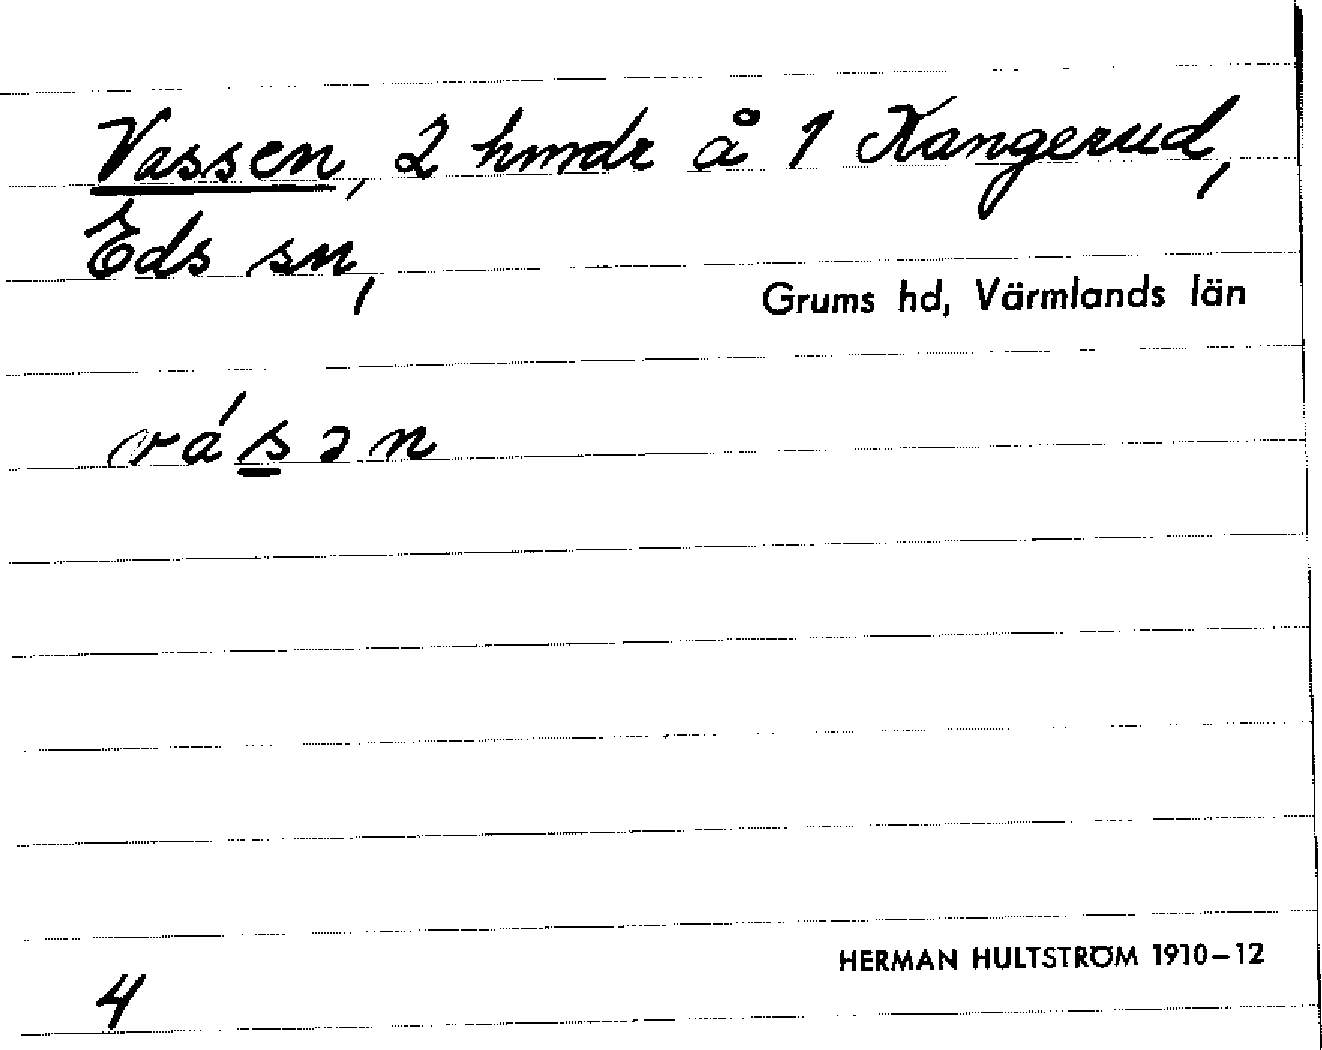 Vassen, 2 hmdr å 1 Kangerud,
Eds sn,
Grums hd, Värmlands län
vásən
HERMAN HULTSTRÖM 1910–12
4